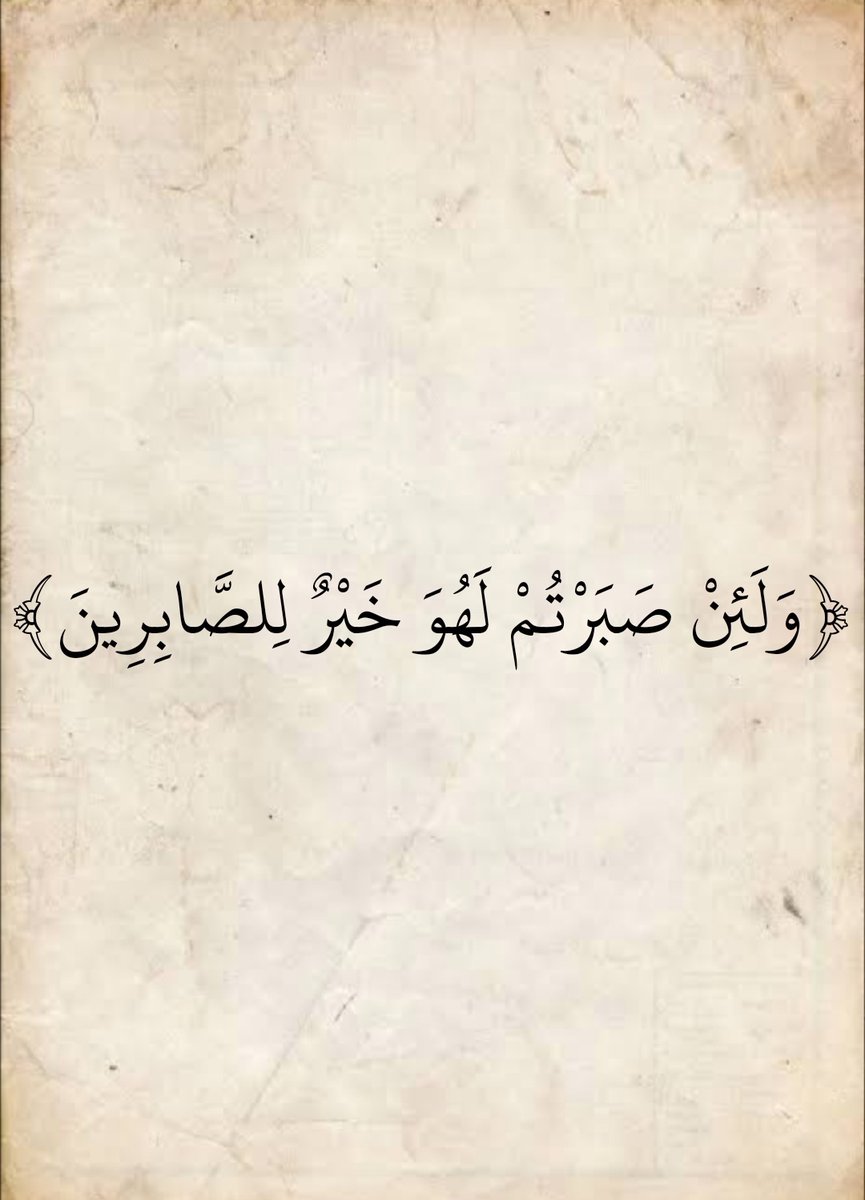 ﴿وَلَئِنْ صَبَرْتُمْ لَهُوَ خَيْرٌ لِلصَّابِرِينَ﴾